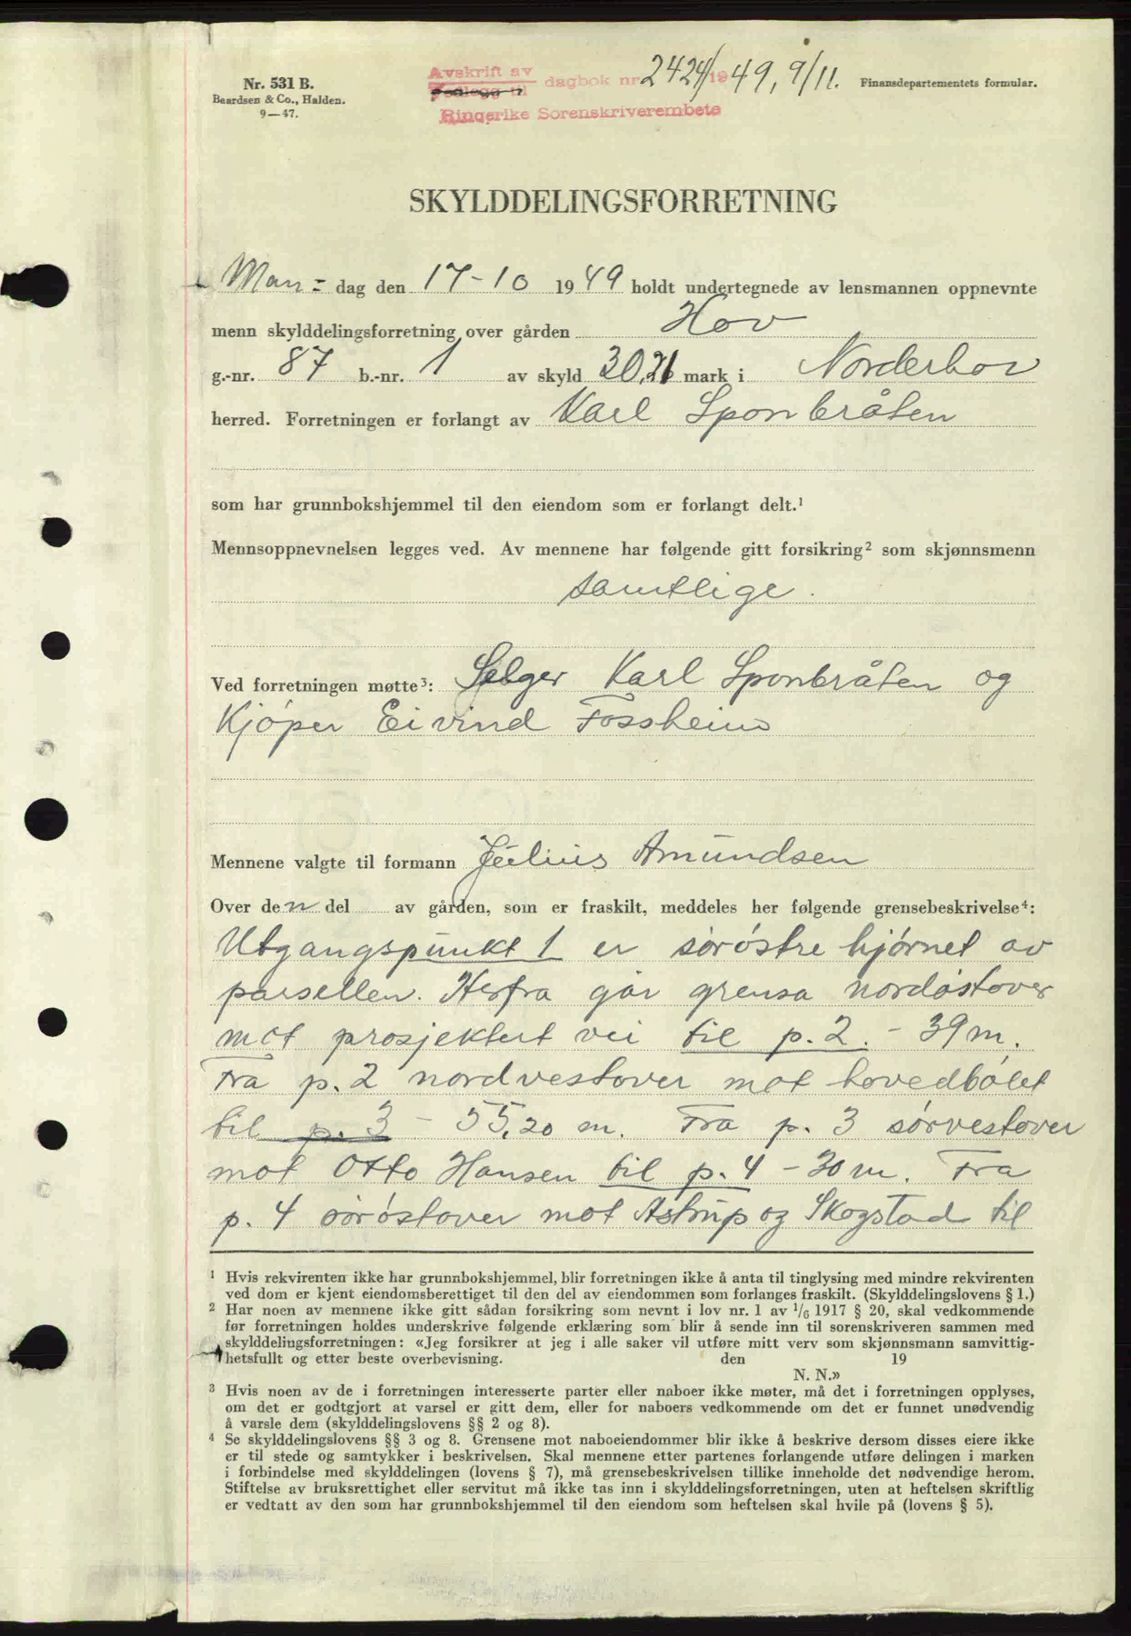 Nr. 531 B.
Baardsen & Co., Halden.
9—47.
Avskrift av
Vedlegg til dagbok nr 2424/1949, 9/11.
Ringerike Sorenskriverembete
Finansdepartementets formular.
SKYLDDELINGSFORRETNING
Man- dag den 17-10 1949 holdt undertegnede av lensmannen oppnevnte
menn skylddelingsforretning over gården Hov
g.-nr. 87 b.-nr. 1 av skyld 30,21 mark i Norderhov
herred. Forretningen er forlangt av Karl Sponbråten
som har grunnbokshjemmel til den eiendom som er forlangt delt.¹
Mennsoppnevnelsen legges ved. Av mennene har følgende gitt forsikring² som skjønnsmenn
samtlige.
Ved forretningen møtte³: Selger Karl Sponbråten og
Kjøper Eivind Fossheim
Mennene valgte til formann Julius Amundsen
Over den del av gården, som er fraskilt, meddeles her følgende grensebeskrivelse⁴:
Utgangspunkt 1 er sørøstre hjørnet av
parsellen. Herfra går grensa nordøstover
mot prosjektert vei til p. 2. - 39 m.
Fra p. 2 nordvestover mot hovedbølet
til p. 3 - 55,20 m. Fra p. 3 sørvestover
mot Otto Hansen til p. 4 - 30 m. Fra
p. 4 sørøstover mot Astrup og Skogstad til
¹ Hvis rekvirenten ikke har grunnbokshjemmel, blir forretningen ikke å anta til tinglysing med mindre rekvirenten
ved dom er kjent eiendomsberettiget til den del av eiendommen som forlanges fraskilt. (Skylddelingslovens § 1.)
² Har noen av mennene ikke gitt sådan forsikring som nevnt i lov nr. 1 av 1/6 1917 § 20, skal vedkommende
før forretningen holdes underskrive følgende erklæring som blir å sende inn til sorenskriveren sammen med
skylddelingsforretningen: «Jeg forsikrer at jeg i alle saker vil utføre mitt verv som skjønnsmann samvittig-
hetsfullt og etter beste overbevisning. den 19
N. N.»
³ Hvis noen av de i forretningen interesserte parter eller naboer ikke møter, må det i forretningen opplyses,
om det er godtgjort at varsel er gitt dem, eller for naboers vedkommende om det er funnet unødvendig
å varsle dem (skylddelingslovens §§ 2 og 8).
⁴ Se skylddelingslovens §§ 3 og 8. Grensene mot naboeiendommer blir ikke å beskrive dersom disses eiere ikke
er til stede og samtykker i beskrivelsen. Skal mennene etter partenes forlangende utføre delingen i marken
i forbindelse med skylddelingen (lovens § 7), må grensebeskrivelsen tillike inneholde det nødvendige herom.
Stiftelse av bruksrettighet eller servitut må ikke tas inn i skylddelingsforretningen, uten at heftelsen skriftlig
er vedtatt av den som har grunnbokshjemmel til den eiendom som heftelsen skal hvile på (lovens § 5).